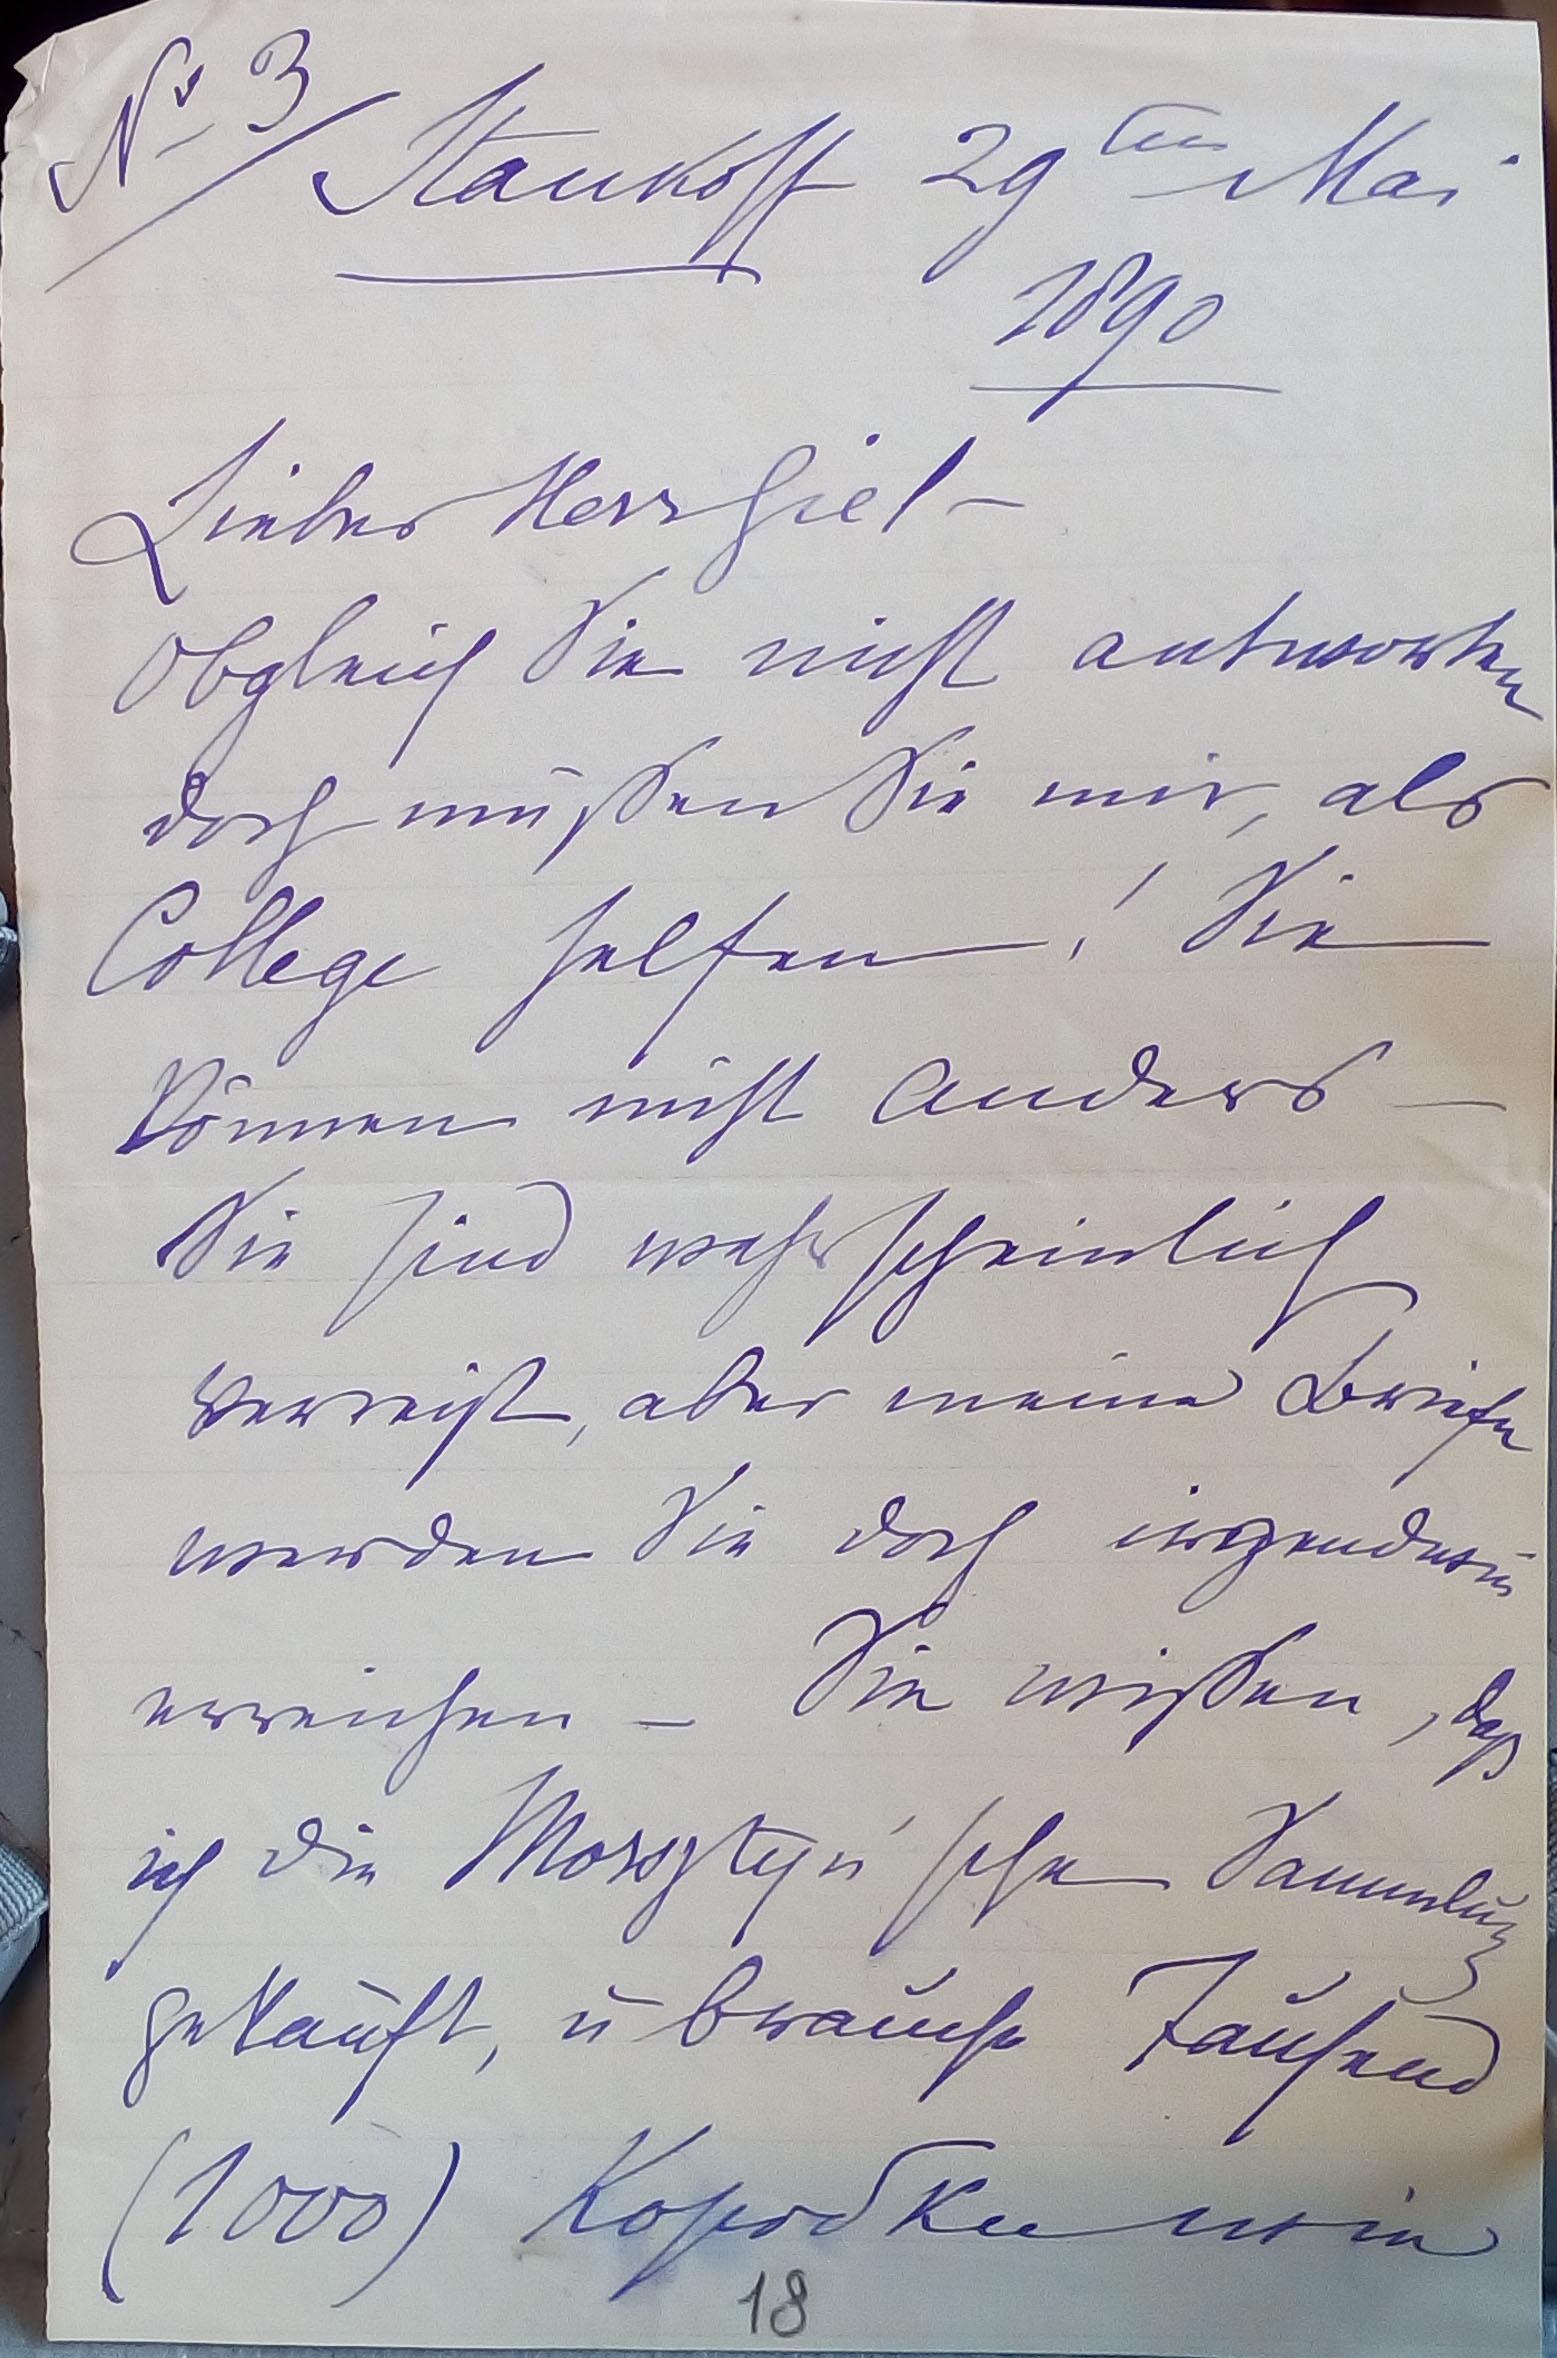 No 3/ Stankoff 29ten Mai
1890
Lieber Herr Giel –
Obgleich Sie nicht antworten
doch müßen Sie mir, als
College helfen! Sie
können nicht anders –
Sie sind wahrscheinlich
verreist, aber meine Briefe
werden Sie doch irgendwie
erreichen – Sie wißen, daß
ich die Morsztyn'sche Sammlung
gekauft, u brauche Tausend
(1000) Коробки wie
18